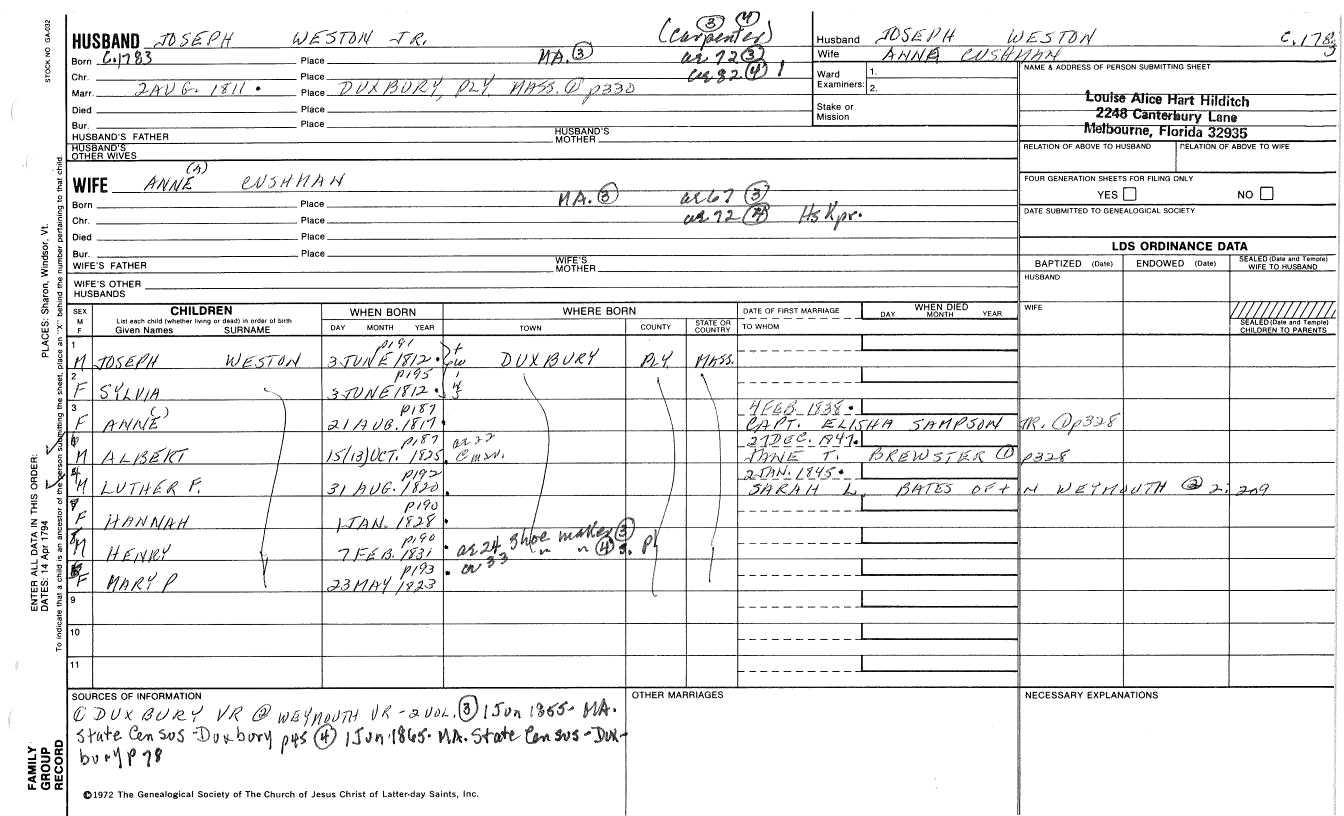 STOCK NO. GA-032
HUSBAND JOSEPH WESTON JR. (Carpenter) ③ ④
Born C.1783 Place MA. ③ ae 72 ③
Chr. Place ae 82 ④
Marr. 2 AUG. 1811 . Place DUXBURY, PLY MASS. ① p330
Died Place
Bur. Place
HUSBAND'S FATHER HUSBAND'S MOTHER
HUSBAND'S OTHER WIVES
Husband JOSEPH WESTON C.1783
Wife ANNE CUSHMAN
Ward Examiners: 1.
2.
Stake or Mission
NAME & ADDRESS OF PERSON SUBMITTING SHEET
Louise Alice Hart Hilditch
2248 Canterbury Lane
Melbourne, Florida 32935
RELATION OF ABOVE TO HUSBAND RELATION OF ABOVE TO WIFE
FOUR GENERATION SHEETS FOR FILING ONLY
YES NO
DATE SUBMITTED TO GENEALOGICAL SOCIETY
WIFE ANNE (A) CUSHMAN
Born Place MA. ③ ae 67 ③
Chr. Place ae 72 ④ HsKpr.
Died Place
Bur. Place
WIFE'S FATHER WIFE'S MOTHER
WIFE'S OTHER HUSBANDS
LDS ORDINANCE DATA
BAPTIZED (Date) ENDOWED (Date) SEALED (Date and Temple) WIFE TO HUSBAND
HUSBAND
WIFE
SEALED (Date and Temple) CHILDREN TO PARENTS
SEX M F
CHILDREN
List each child (whether living or dead) in order of birth
Given Names SURNAME
WHEN BORN
DAY MONTH YEAR
WHERE BORN
TOWN COUNTY STATE OR COUNTRY
DATE OF FIRST MARRIAGE
TO WHOM
WHEN DIED
DAY MONTH YEAR
1 p191
M JOSEPH WESTON 3 JUNE 1812 . DUXBURY PLY MASS.
2 p195
F SYLVIA 3 JUNE 1812 .
3 p187 4 FEB 1838 .
F ANNE 21 AUG. 1817 . CAPT. ELISHA SAMPSON JR. ① p328
p187 ae 22 27 DEC. 1847.
M ALBERT 15 (13) OCT. 1825 . JANE T. BREWSTER ① p328
p192 2 JAN. 1845 .
M LUTHER F. 31 AUG. 1820 . SARAH L. BATES OF N WEYMOUTH ② 2:209
p190
F HANNAH 1 JAN. 1828 .
p190
M HENRY 7 FEB. 1831 . ae 24 Shoe maker ③
ae 33 " " ④
p193
F MARY P 23 MAY 1823 .
9
10
11
SOURCES OF INFORMATION
① DUXBURY VR ② WEYMOUTH VR - 2 VOL. ③ 1 Jun 1855 - MA.
State Census - Duxbury p45 ④ 1 Jun 1865 - MA. State Census - Dux-
bury p 78
OTHER MARRIAGES
NECESSARY EXPLANATIONS
©1972 The Genealogical Society of The Church of Jesus Christ of Latter-day Saints, Inc.
PLACES: Sharon, Windsor, Vt.
ENTER ALL DATA IN THIS ORDER:
DATES: 14 Apr 1794
To indicate that a child is an ancestor of the person submitting the sheet, place an "X" behind the number pertaining to that child.
FAMILY GROUP RECORD